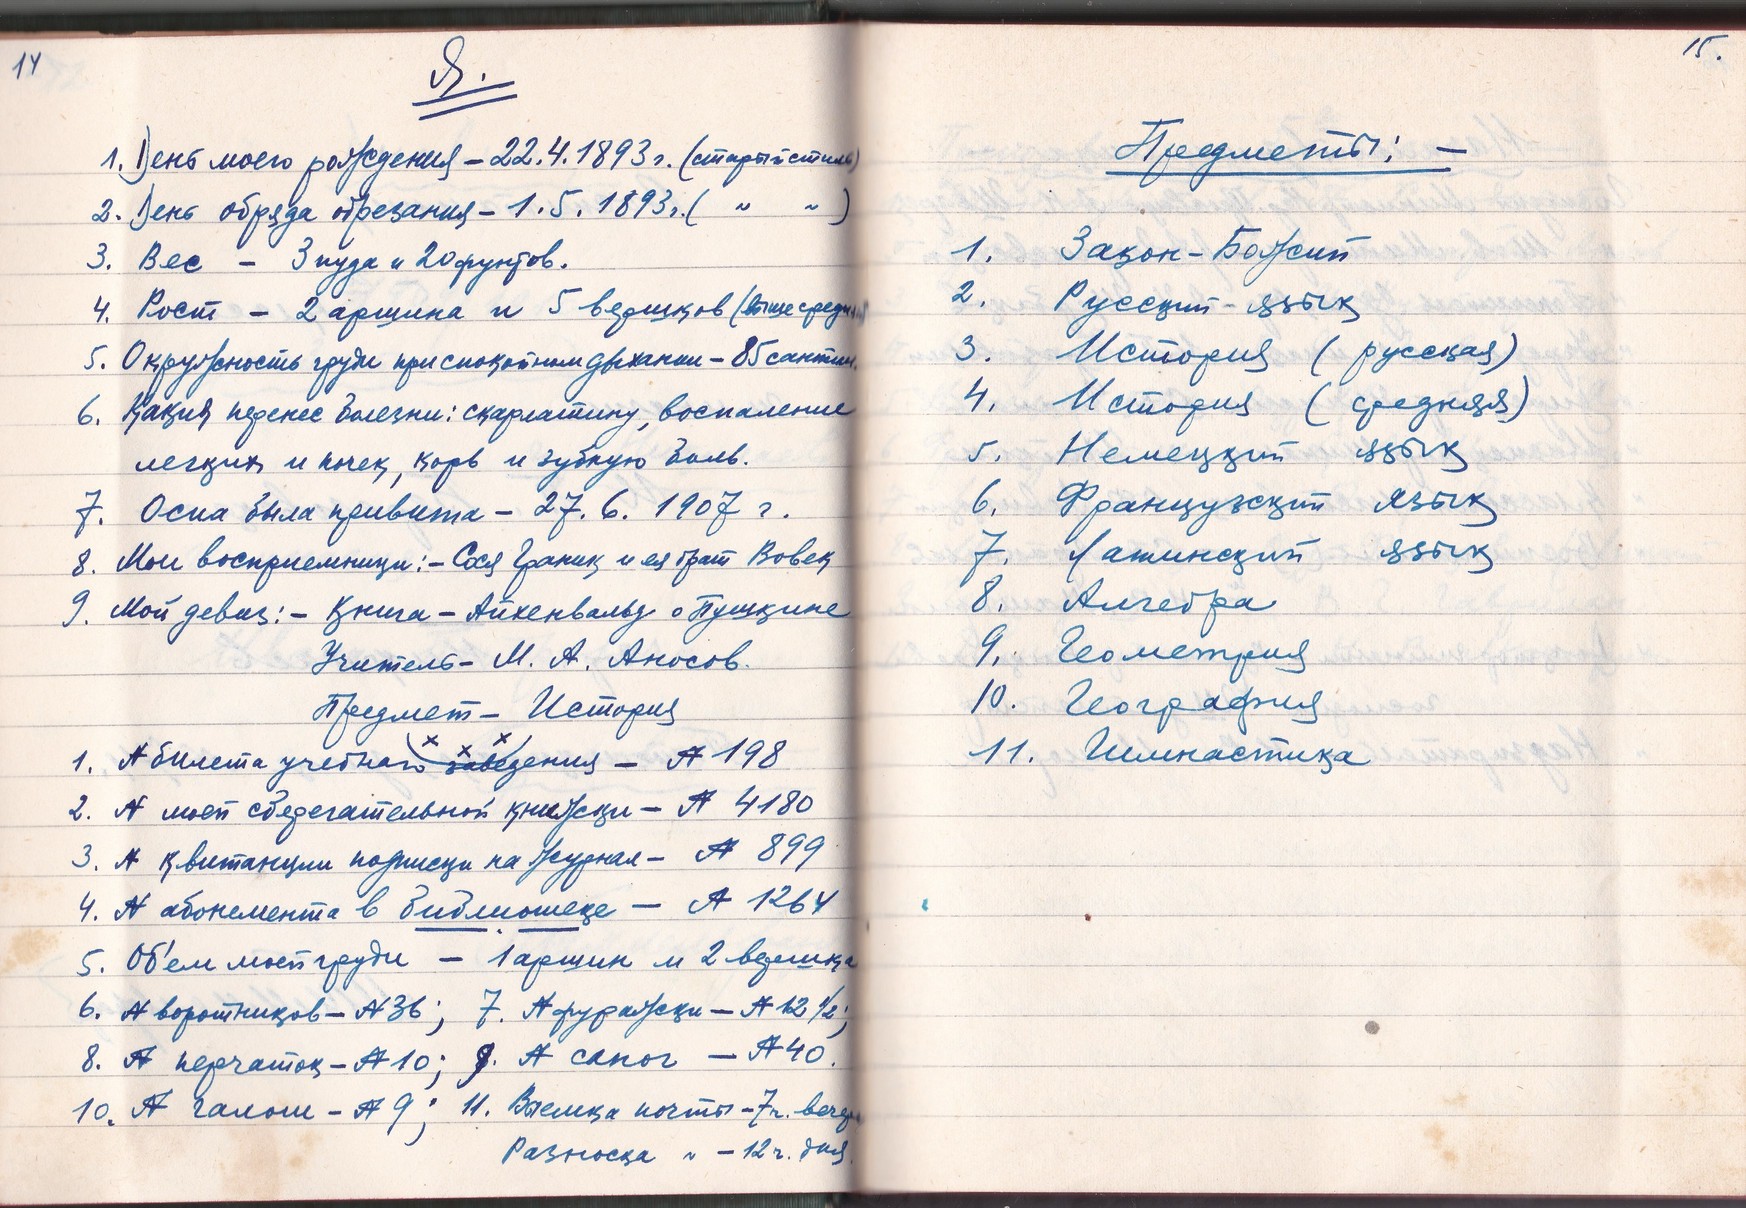 14
Я.
1. День моего рождения – 22.4.1893 г. (старый стиль)
2. День обряда обрезания – 1.5.1893 г. ( " " )
3. Вес – 3 пуда и 20 фунтов.
4. Рост – 2 аршина и 5 вершков (выше средн
5. Окружность груди при спокойном дыхании – 85 сантим.
6. Какия перенес болезни: скарлатину, воспаление
легких и почек, корь и зубную боль.
7. Оспа была привита – 27. 6. 1907 г.
8. Мои восприемники: – Сося Граник и ея брат Вовек
9. Мой девиз: – Книга – Айхенвальд о Пушкине
Учитель – М. А. Аносов.
Предмет – История
1. № билета учебного заведения – № 198
2. № моей сберегательной книжки – № 4180
3. № квитанции подписки на журнал – № 899
4. № абонемента в библиотеке – № 1264
5. Об'ем моей груди – 1 аршин и 2 вершка
6. № воротников – № 36; 7. № фуражки – № 12 1/2;
8. № перчаток – № 10; 9. № сапог – № 40.
10. № галош – № 9; 11. Выемка почты – 7 ч. вечера
Разноска " – 12 ч. дня.
15.
Предметы: –
1. Закон-Божий
2. Русский-язык
3. История (русская)
4. История (средняя)
5. Немецкий язык
6. Французский язык
7. Латинский язык
8. Алгебра
9. Геометрия
10. География
11. Гимнастика